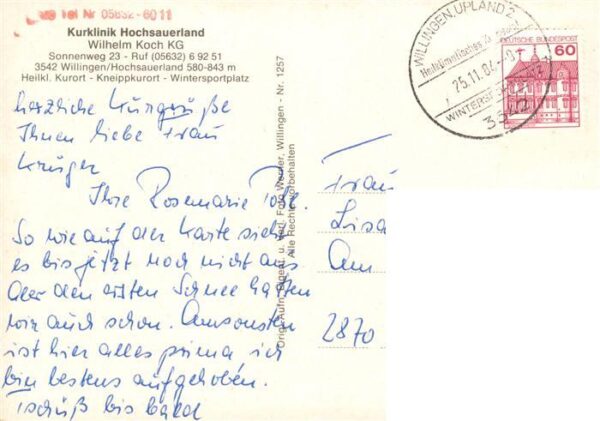 Tel Nr 05632-6011
Kurklinik Hochsauerland
Wilhelm Koch KG
Sonnenweg 23 - Ruf (05632) 6 92 51
3542 Willingen/Hochsauerland 580-843 m
Heilkl. Kurort - Kneippkurort - Wintersportplatz
herzliche Kurgrüße
Ihnen liebe Frau
Krüger
Ihre Rosemarie
So wie auf der Karte sieht
es bis jetzt noch nicht aus
Aber den ersten Schnee hatten
wir auch schon. Ansonsten
ist hier alles prima ich
bin bestens aufgehoben.
Tschüß bis bald
Orig.-Aufn. Digest. u. Verl. Foto Werder, Willingen - Nr. 1257
Alle Rechte vorbehalten
WILLINGEN, UPLAND 2
Heilklimatisches
25.11.84
WINTERSPORT
3542
DEUTSCHE BUNDESPOST
60
Frau
Lisa
Am
2870